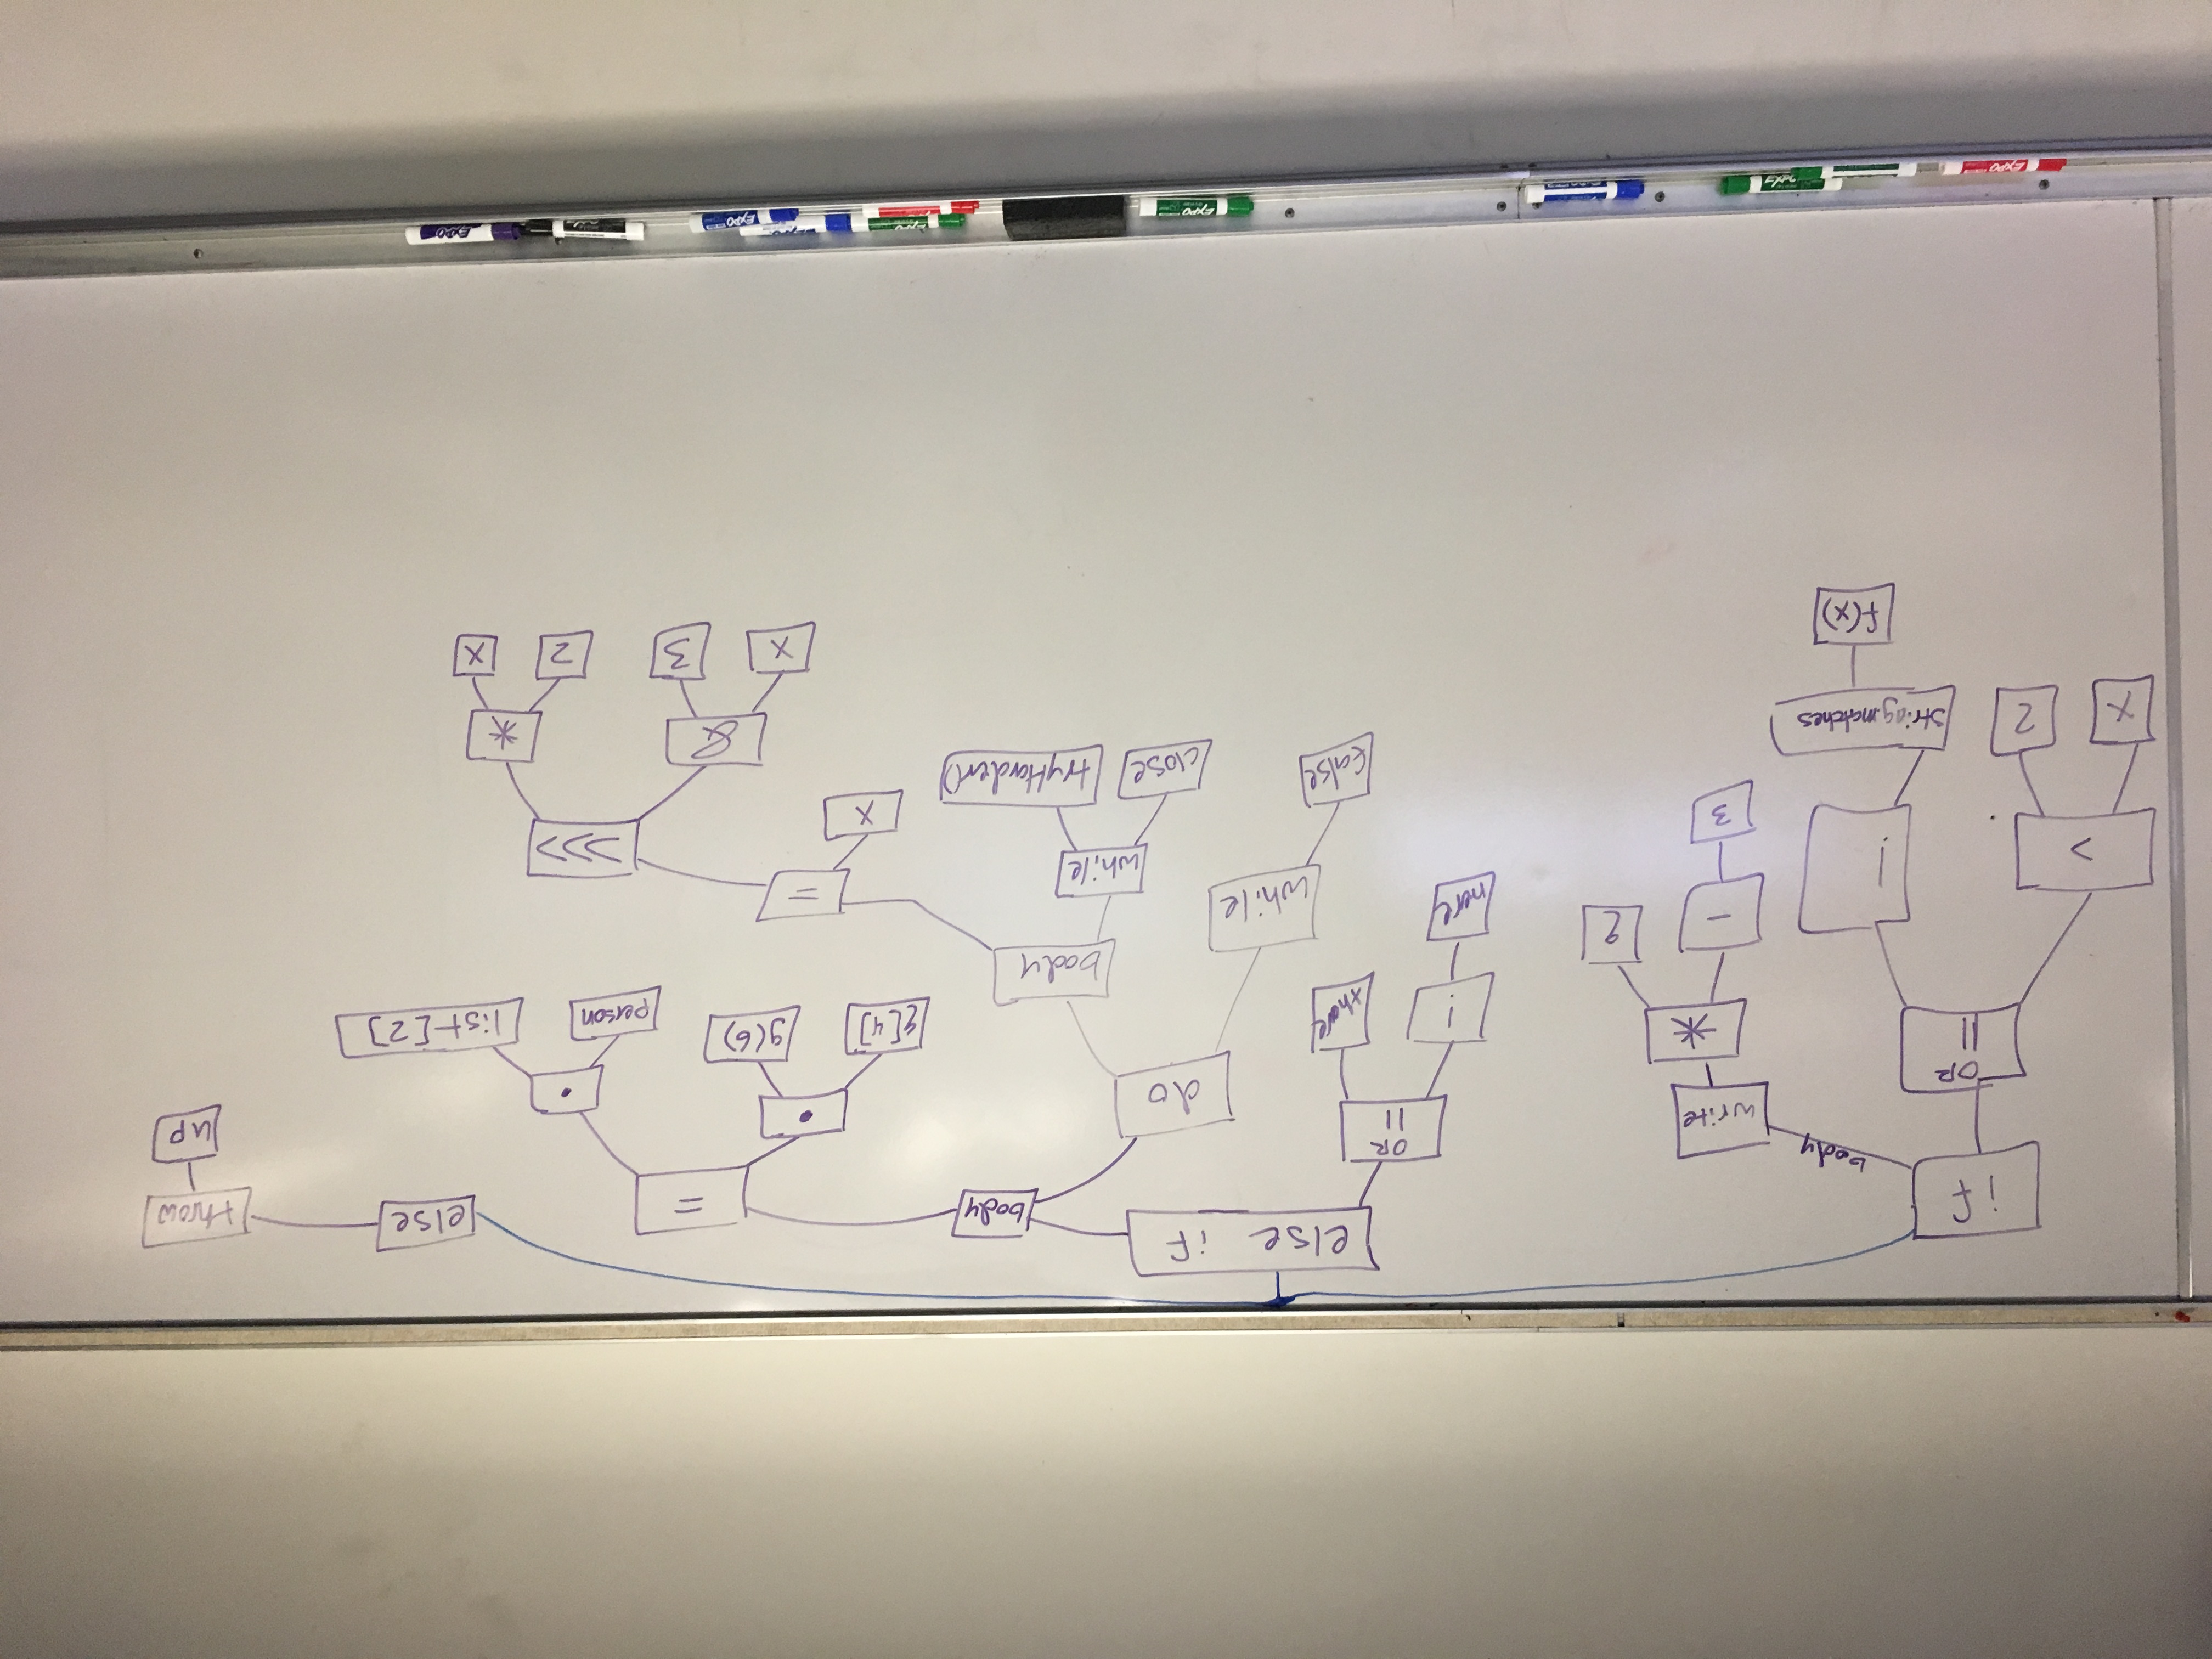 if
body
write
OR
||
*
-
q
3
>
!
x
2
string.matches
f(x)
else if
body
OR
||
!
here
do
while
false
body
while
close
tryHarder()
=
x
>>>
&
*
x
3
2
x
=
.
q[4]
g(6)
.
person
list[2]
else
throw
up
EXPO
EXPO
EXPO
EXPO
EXPO
EXPO